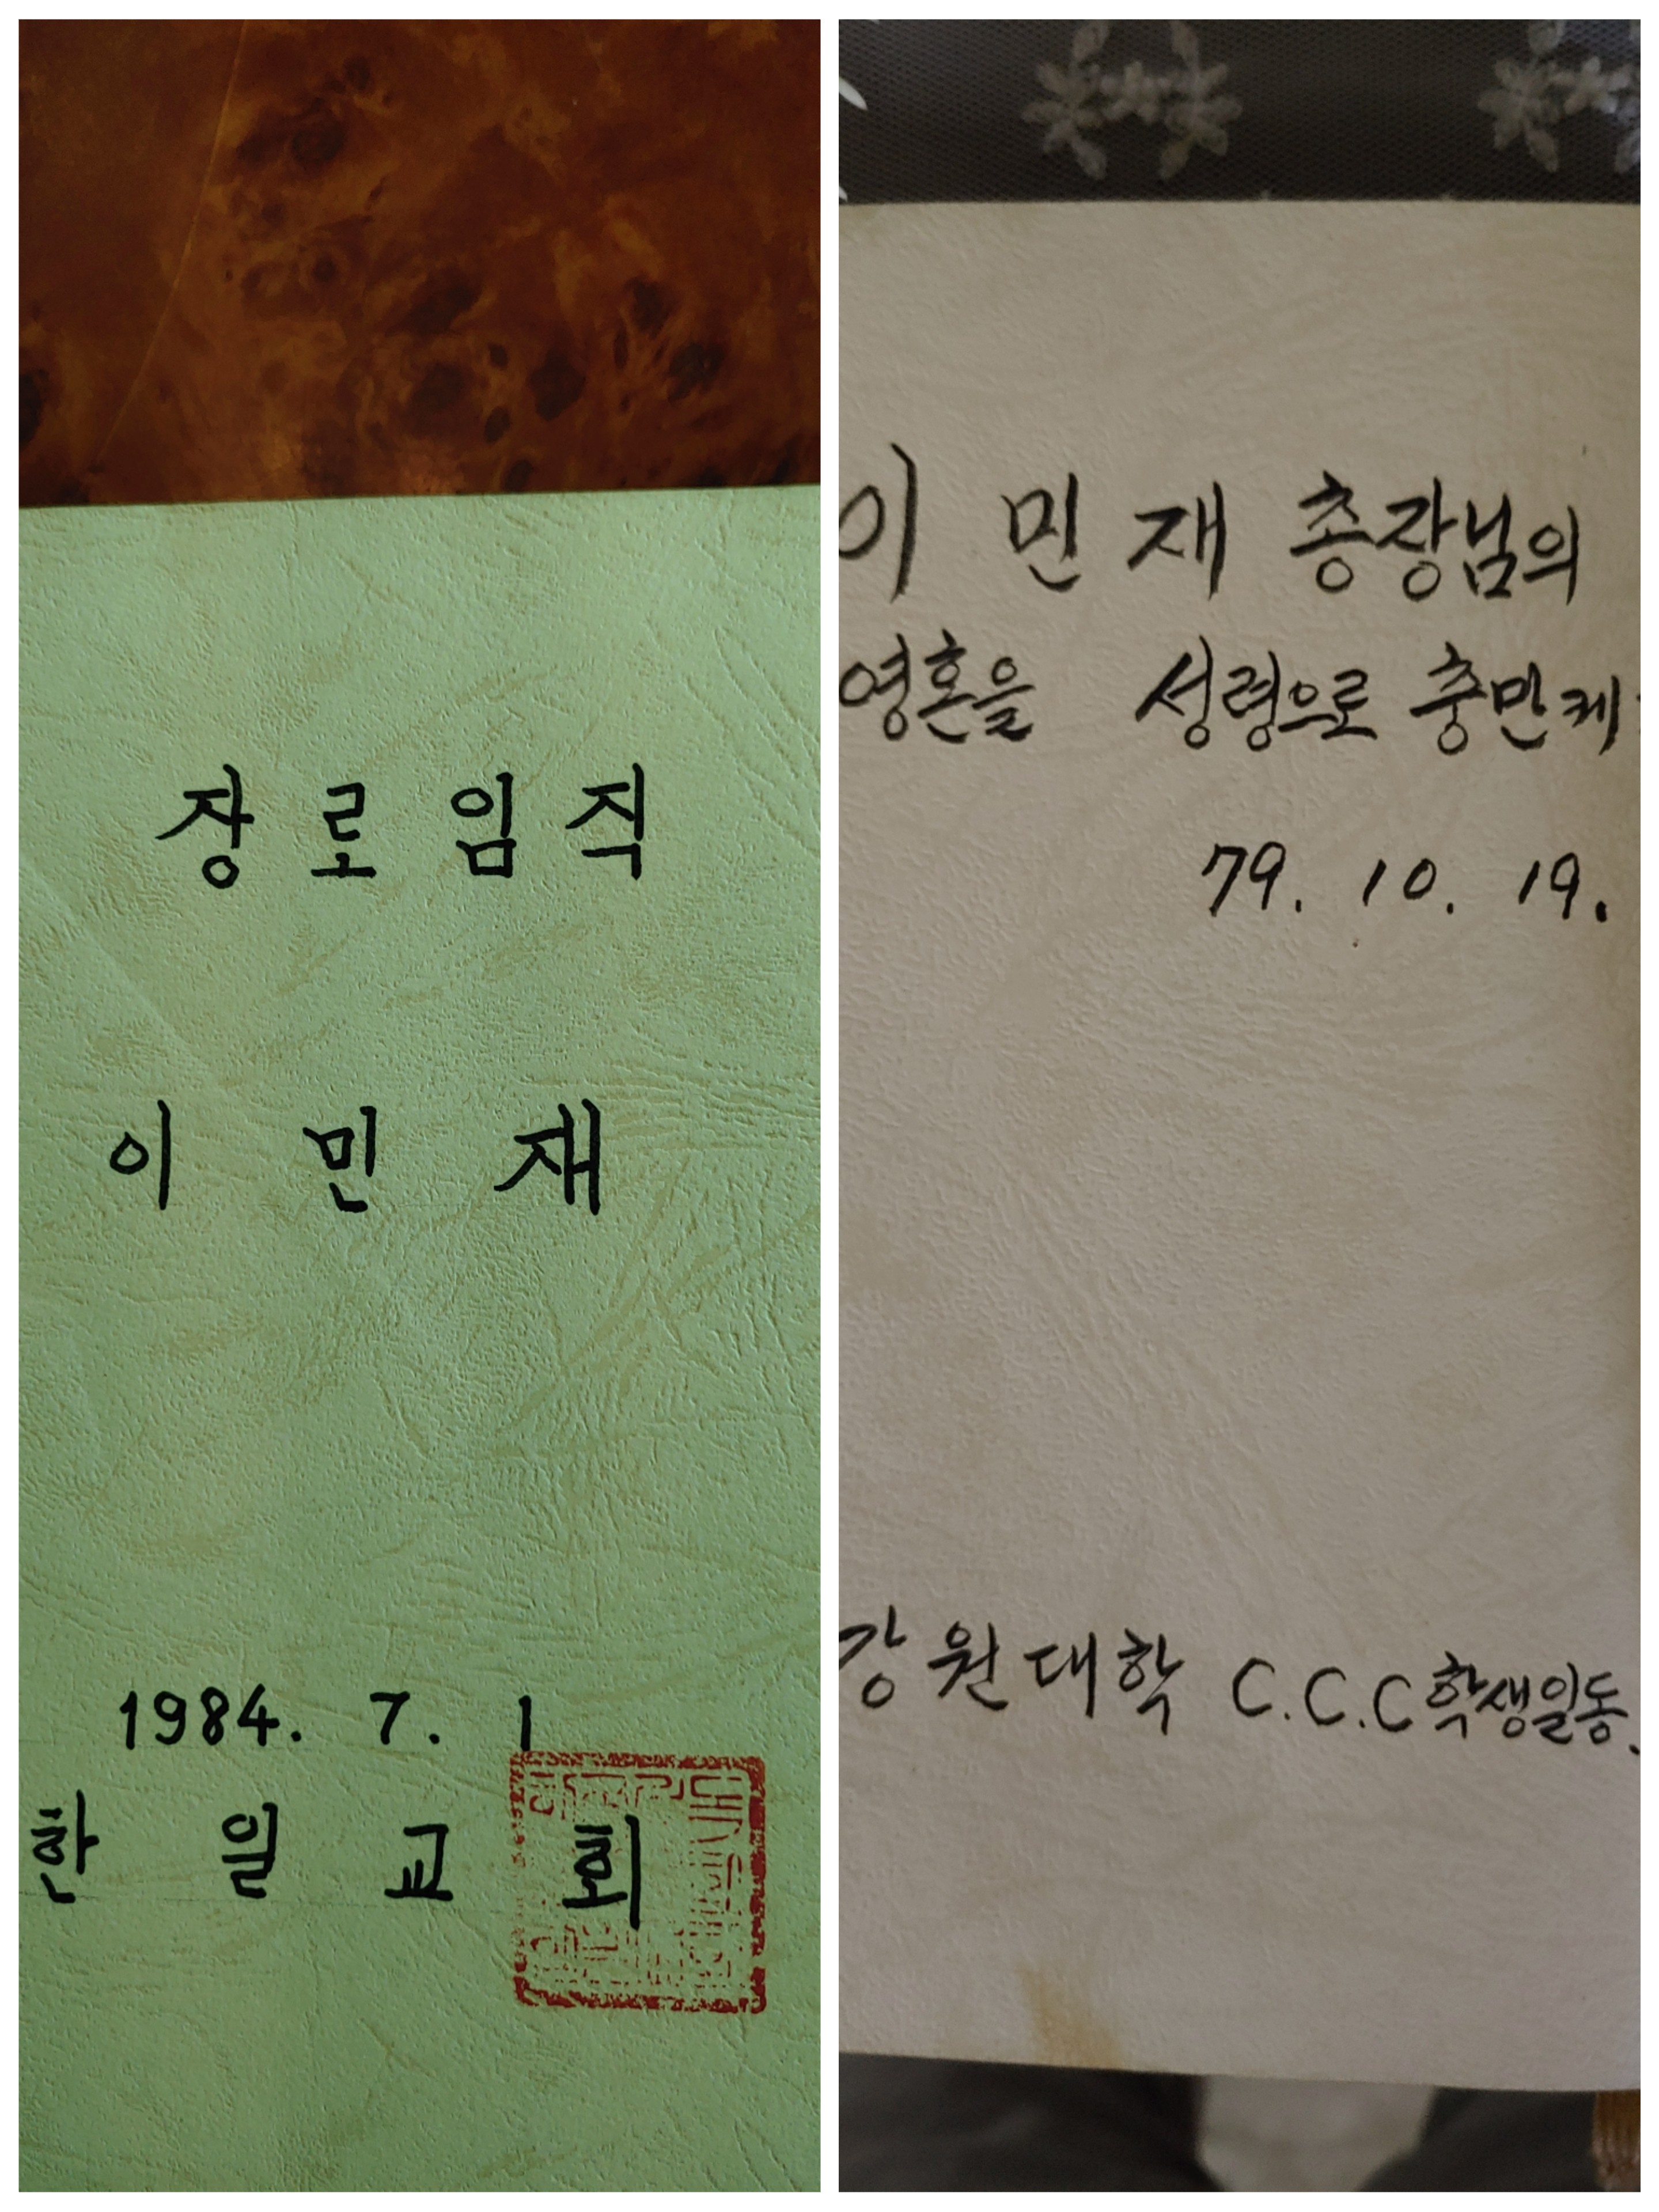 장로임직
이 민 재
1984. 7. 1
한 일 교 회
이 민 재 총장님의
영혼을 성령으로 충만케
79. 10. 19.
강원대학 C.C.C 학생일동.